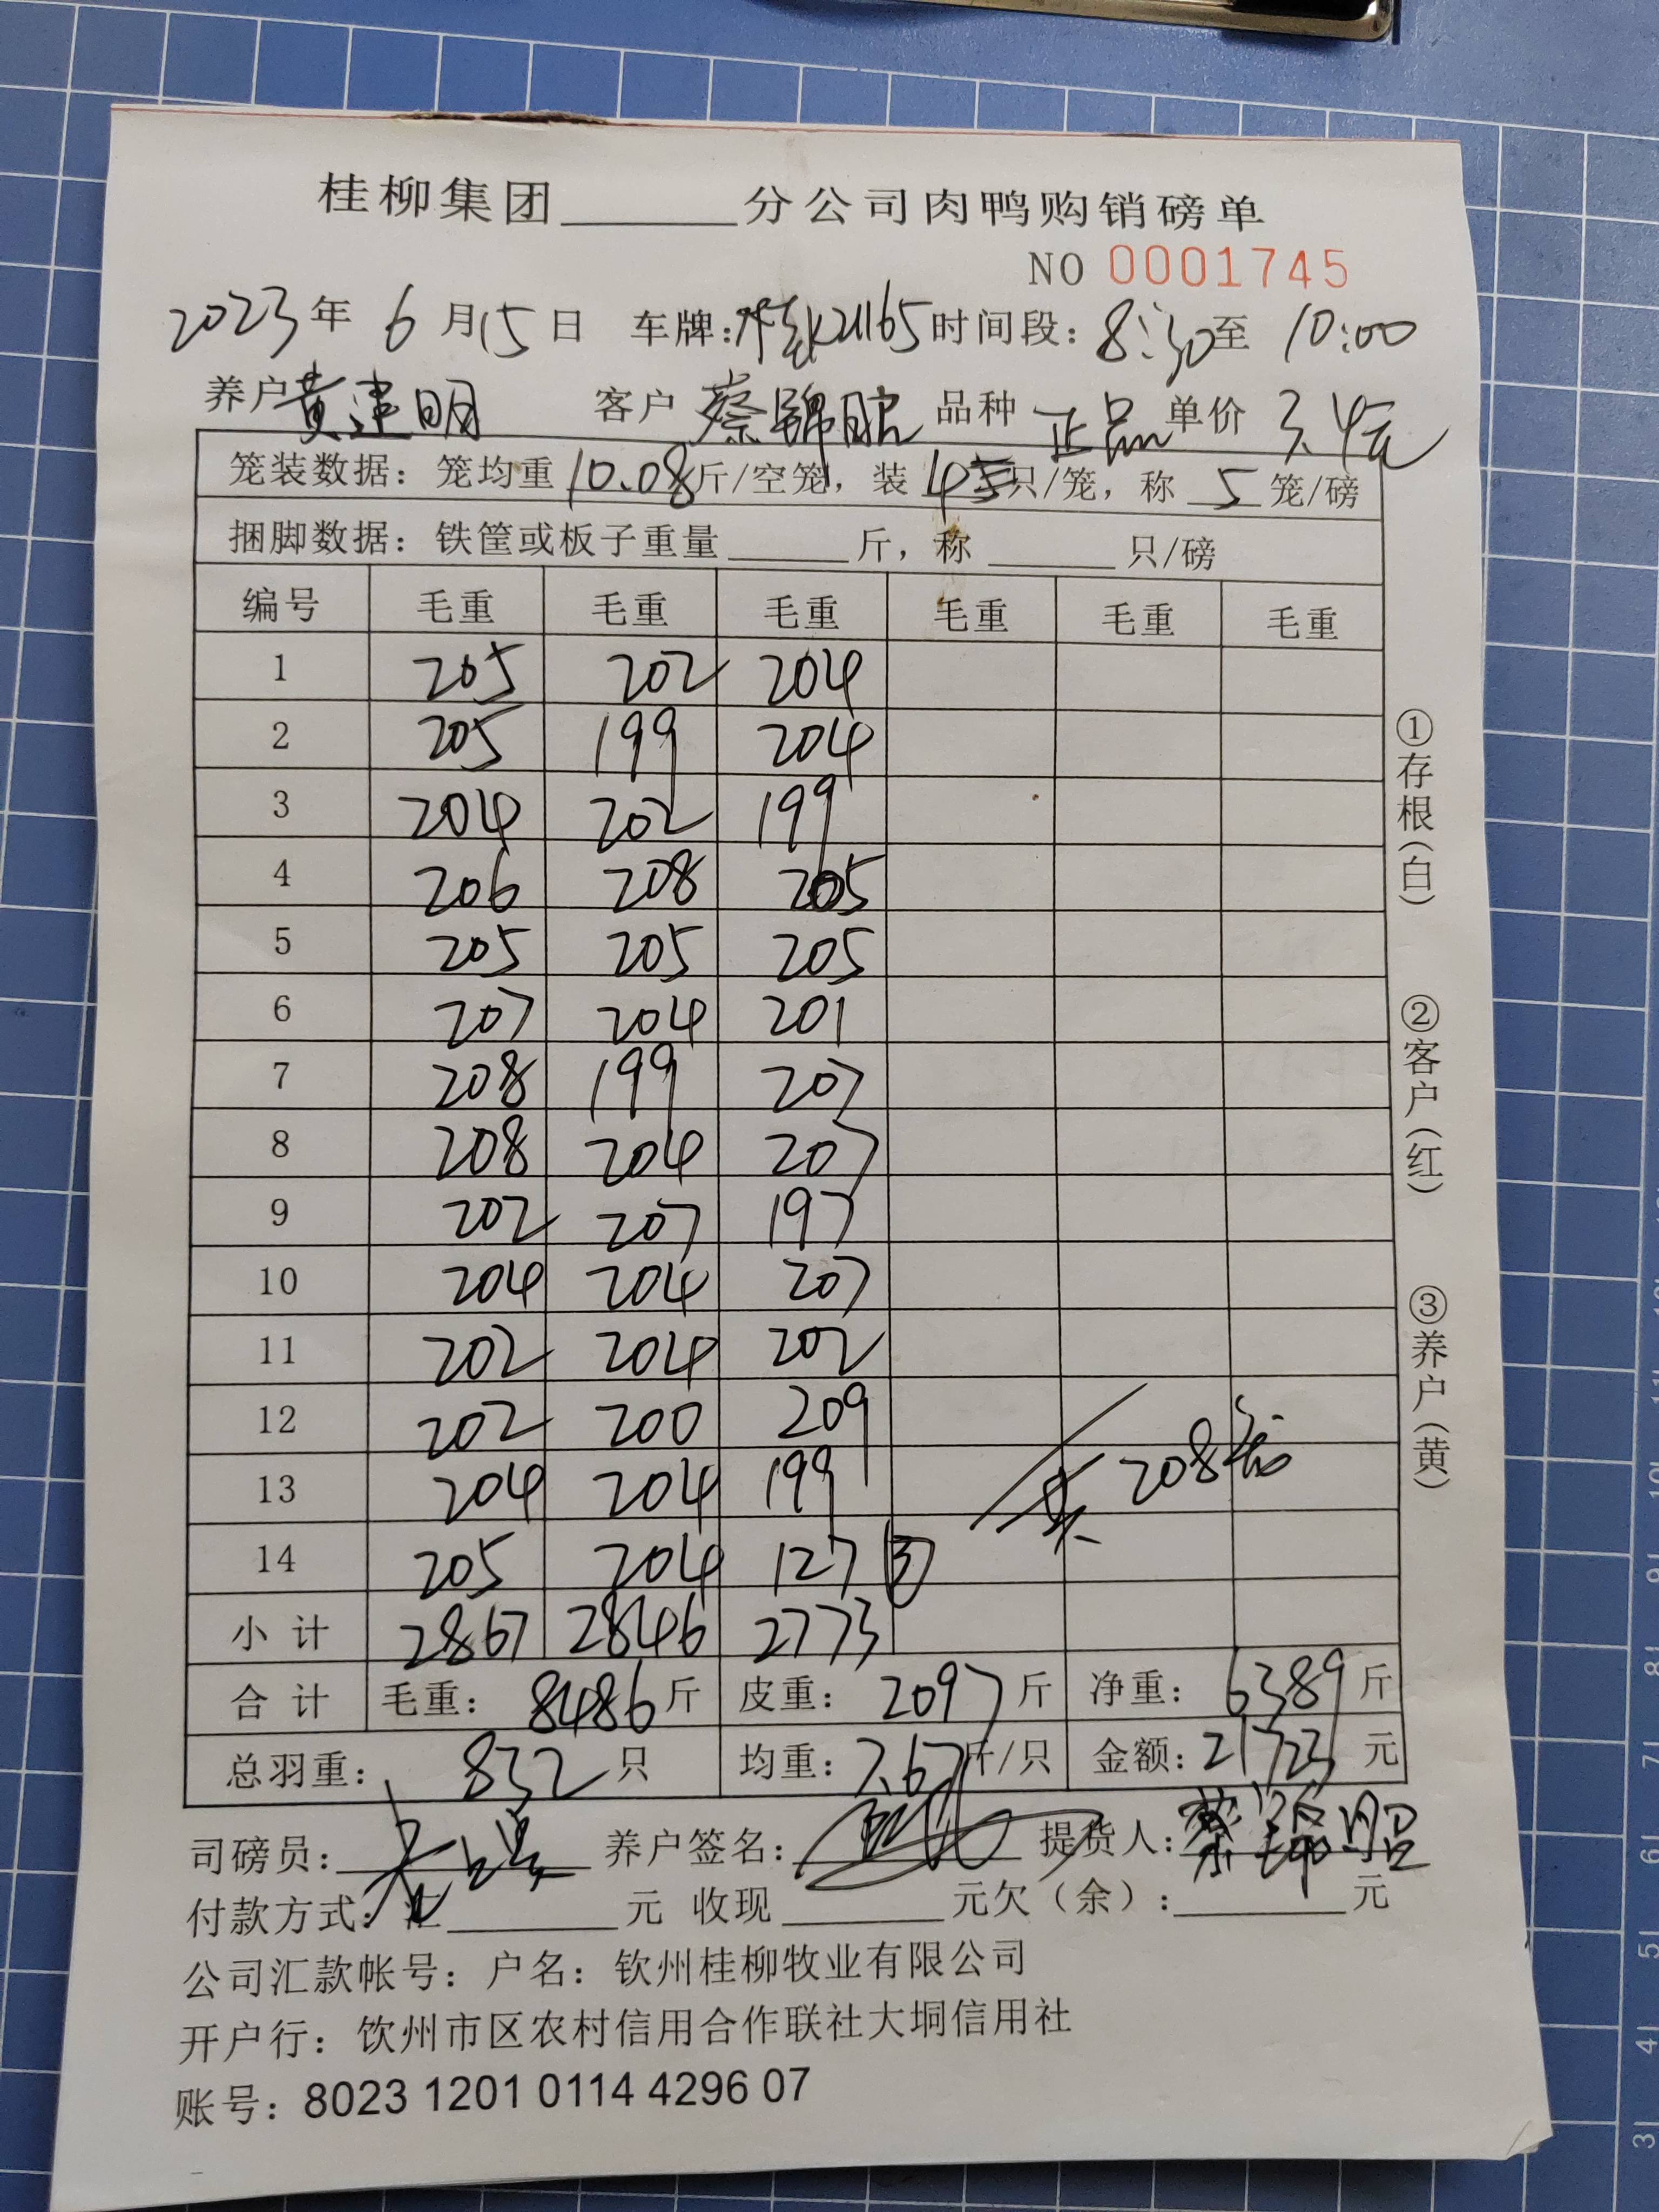 桂柳集团______分公司肉鸭购销磅单
NO 0001745
2023年 6月15日 车牌:K21165 时间段:8:30至 10:00
养户 黄建明 客户 蔡锦 品种 正品 单价 3.4元
笼装数据:笼均重10.08斤/空笼,装 4 只/笼,称 5 笼/磅
捆脚数据:铁筐或板子重量______斤,称______只/磅
编号 毛重 毛重 毛重 毛重 毛重 毛重
1 205 202 204
2 205 199 204
3 204 202 199
4 206 208 205
5 205 205 205
6 207 204 201
7 208 199 207
8 208 204 207
9 202 207 197
10 204 204 207
11 202 204 202
12 202 200 209
13 204 204 199 共 208
14 205 204 127 ③
小计 2867 2846 2773
合计 毛重:8486斤 皮重:2097斤 净重:6389斤
总羽重:832只 均重:7.67斤/只 金额:21723元
司磅员: 养户签名: 提货人:蔡锦
付款方式:汇______元 收现______元欠(余):______元
公司汇款帐号:户名:钦州桂柳牧业有限公司
开户行:饮州市区农村信用合作联社大垌信用社
账号:8023 1201 0114 4296 07
①存根(白) ②客户(红) ③养户(黄)